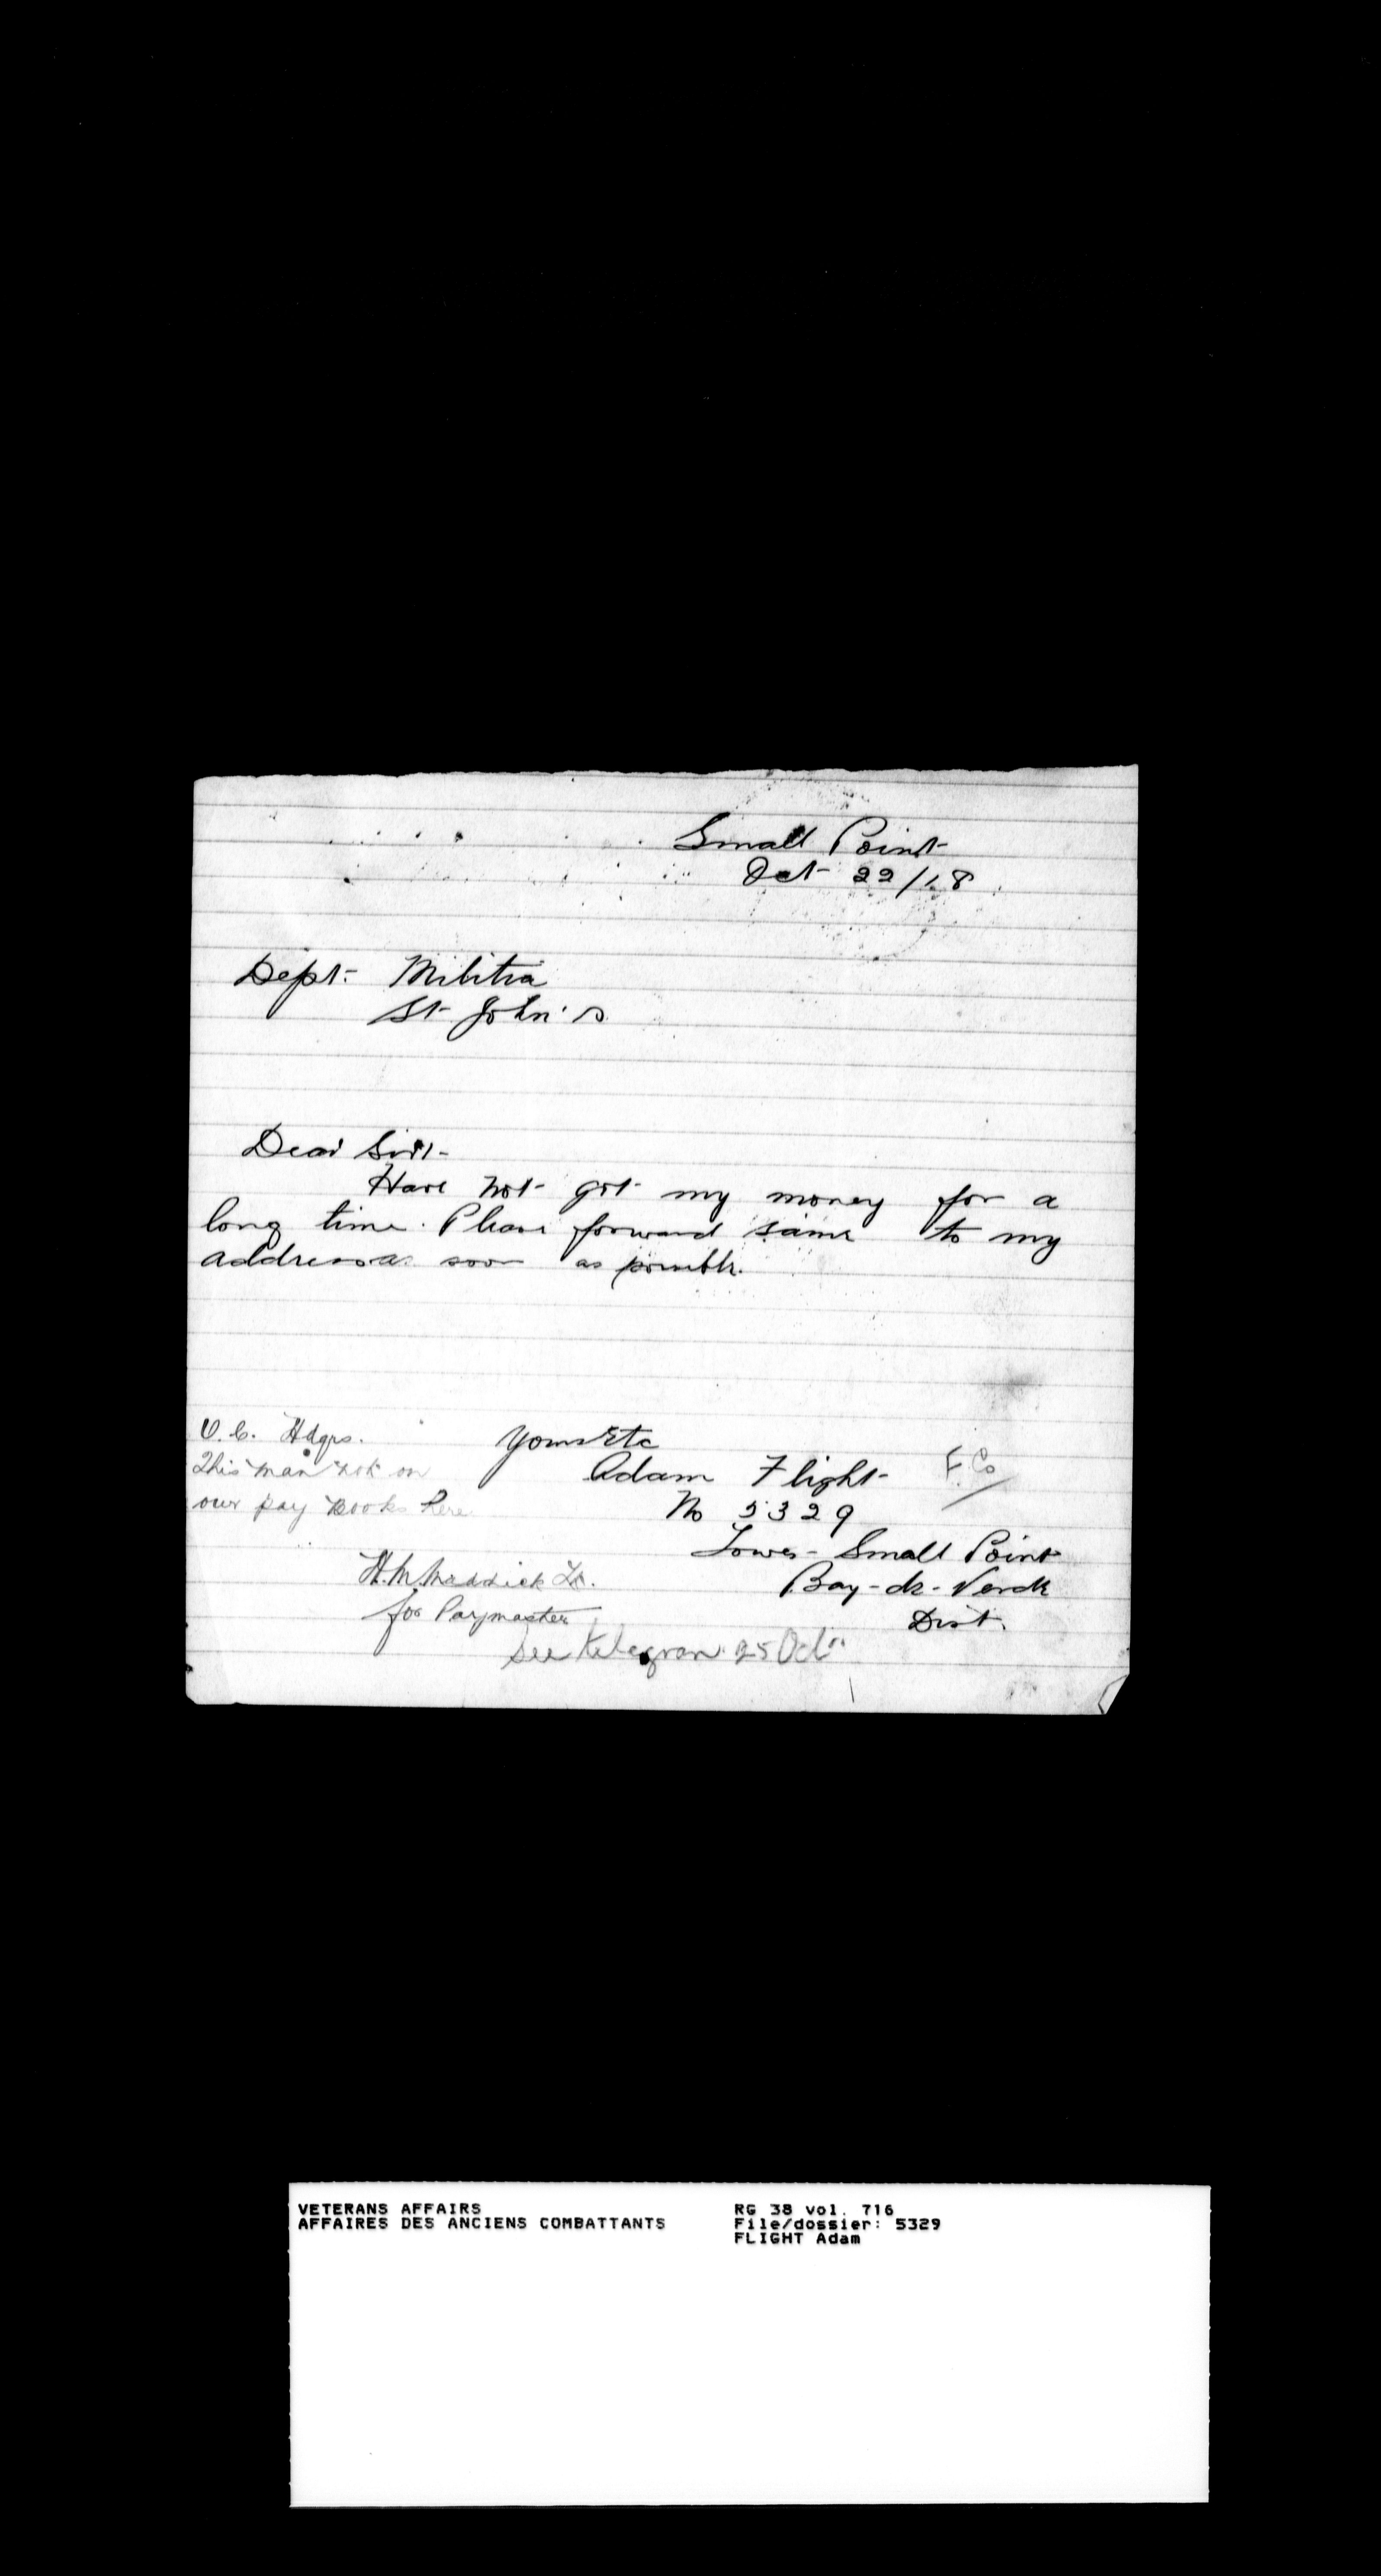 Small Point
Oct 22/18
Dept. Militia
St John's
Dear Sir:-
Have not got my money for a
long time. Please forward same to my
address as soon as possible.
Yours Etc
Adam Flight
No 5329
Lower Small Point
Bay-de-Verde
Dist.
F. Co
O. C. Hdqrs.
This man not on
our pay books here
H. M. Maddick Lt.
for Paymaster
See telegram 25 Oct
VETERANS AFFAIRS
AFFAIRES DES ANCIENS COMBATTANTS
RG 38 vol. 716
File/dossier: 5329
FLIGHT Adam